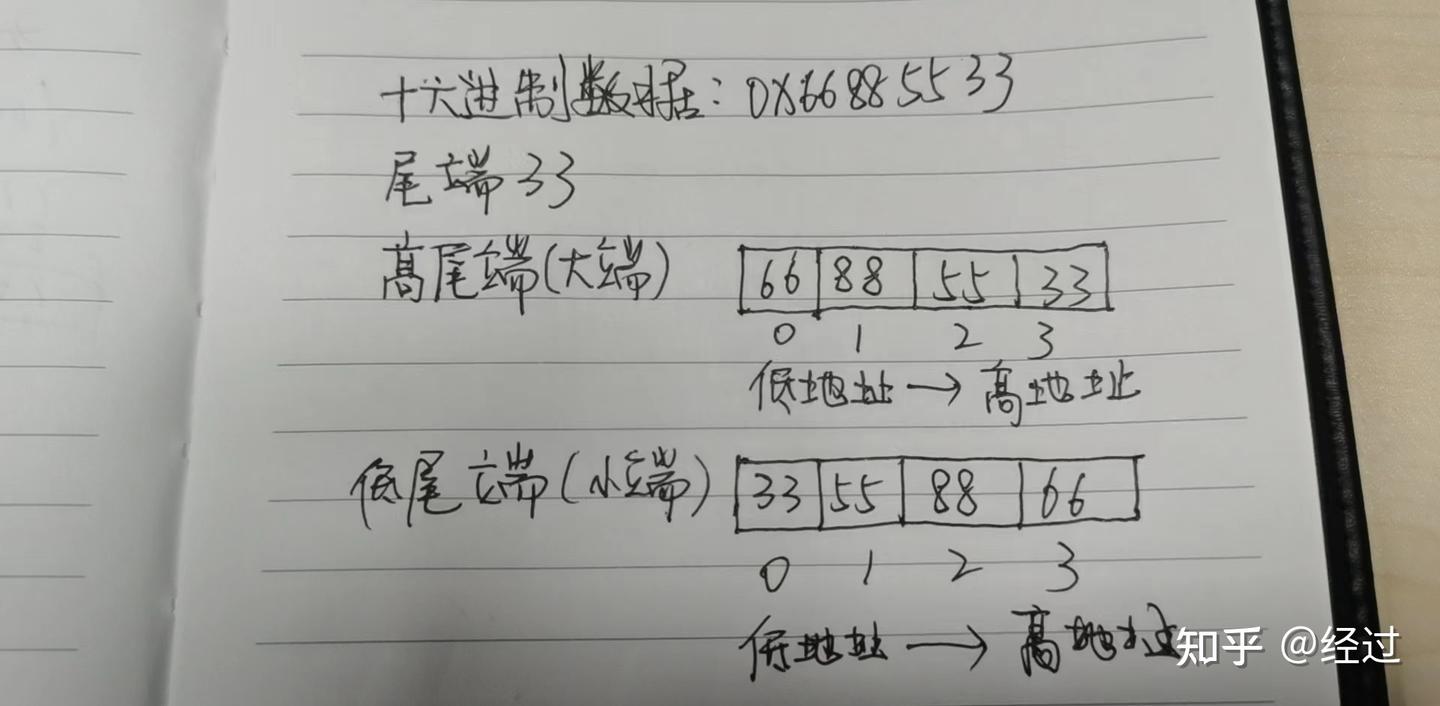 十六进制数据：0X66885533
尾端33
高尾端(大端) 66 88 55 33
0 1 2 3
低地址→高地址
低尾端(小端) 33 55 88 66
0 1 2 3
低地址→高地址
知乎 @经过